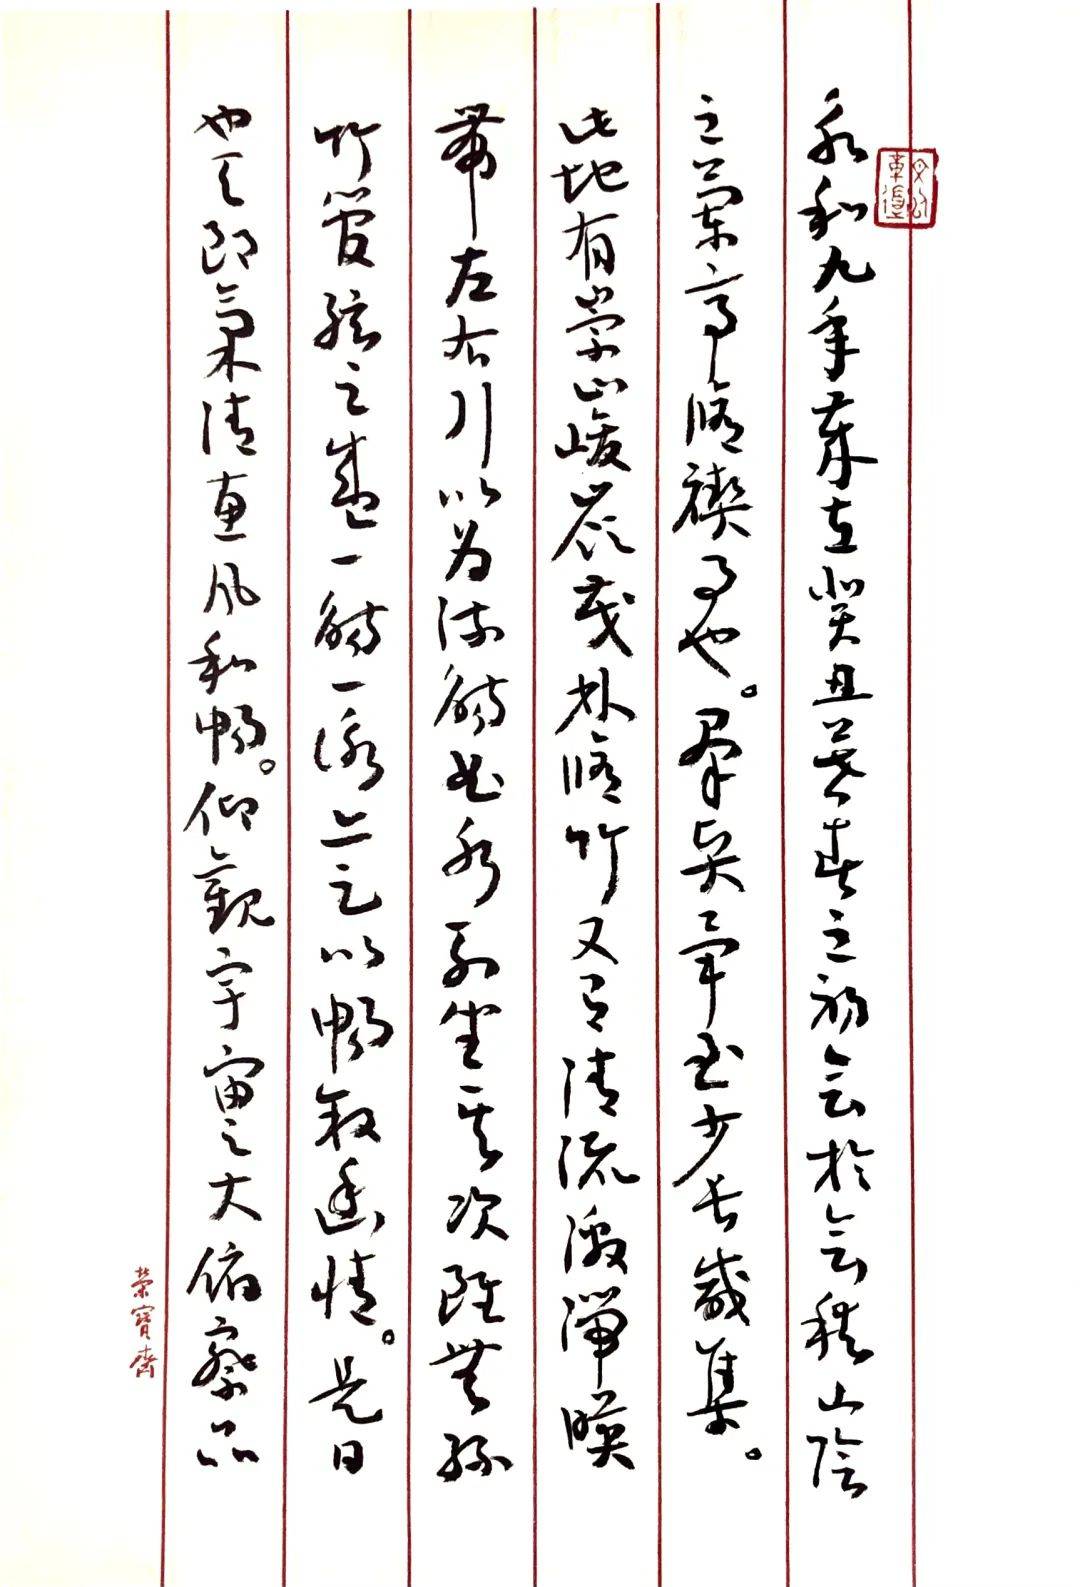 永和九年歲在癸丑暮春之初會於會稽山陰
之蘭亭脩禊事也。羣賢畢至少長咸集。
此地有崇山峻嶺茂林脩竹又有清流激湍暎
帶左右引以為流觴曲水列坐其次雖無絲
竹管弦之盛一觴一詠亦足以暢敘幽情。是日
也天朗氣清惠風和暢。仰觀宇宙之大俯察品
榮寶齋